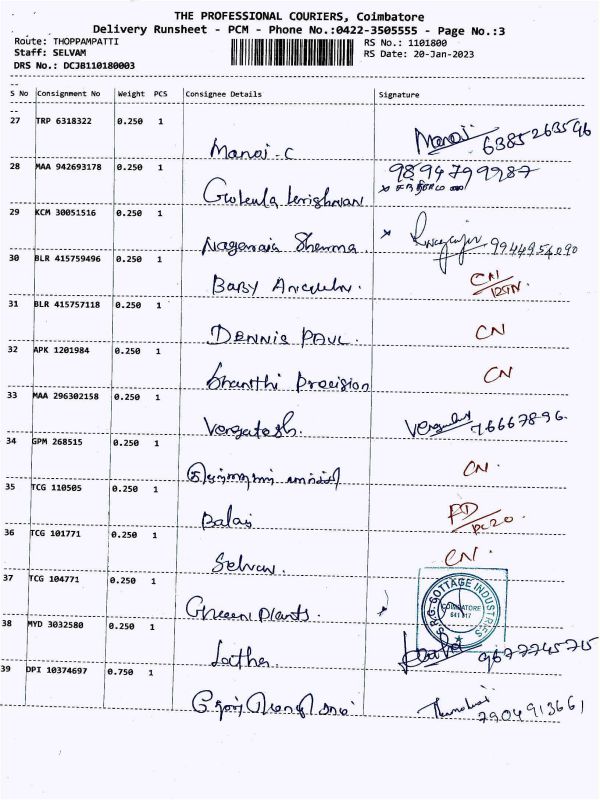 THE PROFESSIONAL COURIERS, Coimbatore
Delivery Runsheet - PCM - Phone No.:0422-3505555 - Page No.:3
Route: THOPPAMPATTI
Staff: SELVAM
DRS No.: DCJB110180003
RS No.: 1101800
RS Date: 20-Jan-2023
S No Consignment No Weight PCS Consignee Details Signature
27 TRP 6318322 0.250 1
Manoj-C Manoj 6385263596
28 MAA 942693178 0.250 1 9894799987
29 KCM 30051516 0.250 1
Nagaraja Sharma 9944954090
30 BLR 415759496 0.250 1
Baby CN
31 BLR 415757118 0.250 1
DENNIS PAUL CN
32 APK 1201984 0.250 1
Shantthi Precision CN
33 MAA 296302158 0.250 1
Vengatesh. 76667896.
34 GPM 268515 1
CN.
35 TCG 110505 0.250 1
Balaji
36 TCG 101771 0.250 1
Selvan CN.
37 TCG 104771 0.250 1
Green Plants.
S.R.G. COTTAGE INDUSTRIES
COIMBATORE
641 017
38 MYD 3032580 0.250 1
Latha. 9677745715
39 DPI 10374697 0.750 1
7904913661